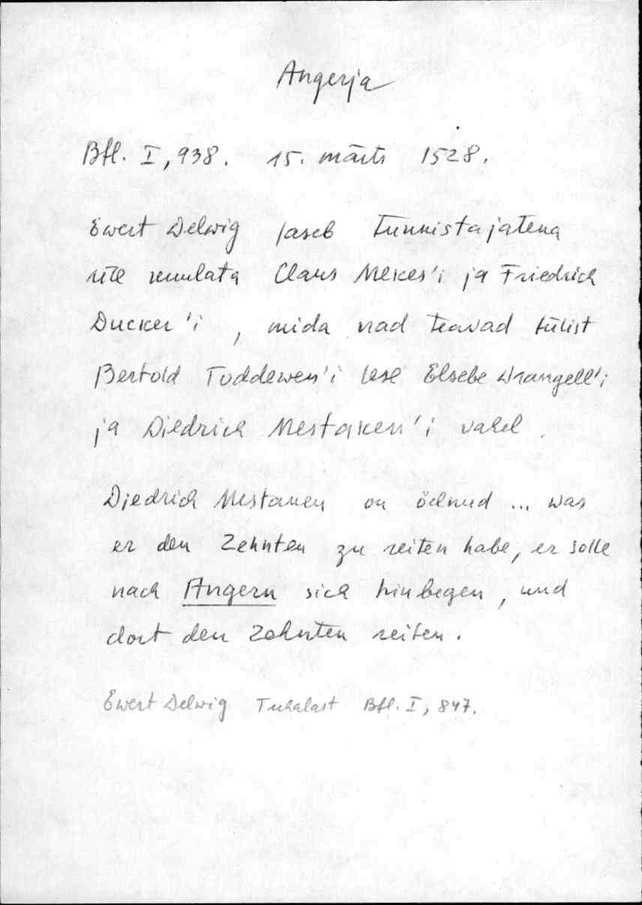 Angerja
Bfl. I, 938. 15. märts 1528.
Ewert Delwig laseb tunnistajatena
üle kuulata Claus Mekes'i ja Friedrich
Ducker'i, mida nad teavad tülist
Bertold Toddewen'i lese Elsebe Wrangell'i
ja Diedrich Mestaken'i vahel.
Diedrich Mestaken on öelnud ... was
er den Zehnten zu reiten habe, er solle
nach Angern sich hinbegen, und
dort den Zehnten reiten.
Ewert Delwig Tuhalast Bfl. I, 847.